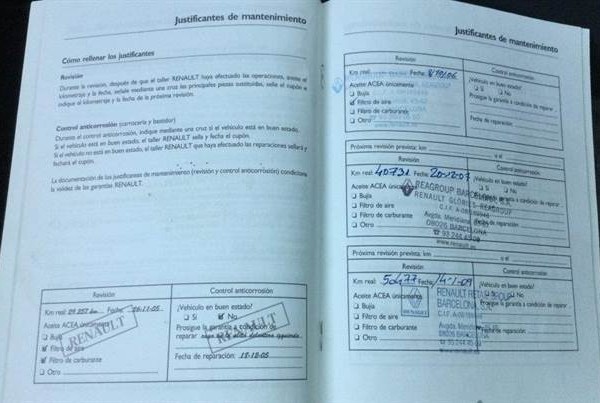 Justificantes de mantenimiento
Cómo rellenar los justificantes
Revisión
Durante la revisión, después de que el taller RENAULT haya efectuado las operaciones, anote el
kilometraje y la fecha, señale mediante una cruz las principales piezas sustituidas, selle el cupón e
indique el kilometraje y la fecha de la próxima revisión.
Control anticorrosión (carrocería y bastidor)
Durante el control anticorrosión, indique mediante una cruz si el vehículo está en buen estado.
Si el vehículo está en buen estado, el taller RENAULT sella y fecha el cupón.
Si el vehículo no está en buen estado, el taller RENAULT que haya efectuado las reparaciones sellará y
fechará el cupón.
La documentación de los justificantes de mantenimiento (revisión y control anticorrosión) condiciona
la validez de las garantías RENAULT.
Revisión
Km real: Fecha: 11-05
Aceite ACEA únicamente
Bujía
Filtro de aire
Filtro de carburante
Otro
RENAULT
Control anticorrosión
¿Vehículo en buen estado?
Sí No
Prosigue la garantía a condición de
reparar
Fecha de reparación: 15-12-05
RENAULT
Justificantes de mantenimiento
Revisión
Km real: Fecha:
Aceite ACEA únicamente
Bujía
Filtro de aire
Filtro de carburante
Otro
Control anticorrosión
¿Vehículo en buen estado?
Sí No
Prosigue la garantía a condición de reparar
Fecha de reparación:
Próxima revisión prevista: km o el
Revisión
Km real: 40731 Fecha: 20-12-07
Aceite ACEA únicamente
Bujía
Filtro de aire
Filtro de carburante
Otro
Control anticorrosión
¿Vehículo en buen estado?
Sí No
Prosigue la garantía a condición de reparar
REAGROUP BARCELONA, S.A.
RENAULT GLORIES REAGROUP
Avgda. Meridiana,
08026 BARCELONA
Próxima revisión prevista: km o el
Revisión
Km real: 50477 Fecha: 14-1-09
Aceite ACEA únicamente
Bujía
Filtro de aire
Filtro de carburante
Otro
Control anticorrosión
¿Vehículo en buen estado?
Sí No
Prosigue la garantía a condición de reparar
Fecha de reparación:
RENAULT RETAIL GROUP
BARCELONA
08026 BARCELONA
RENAULT